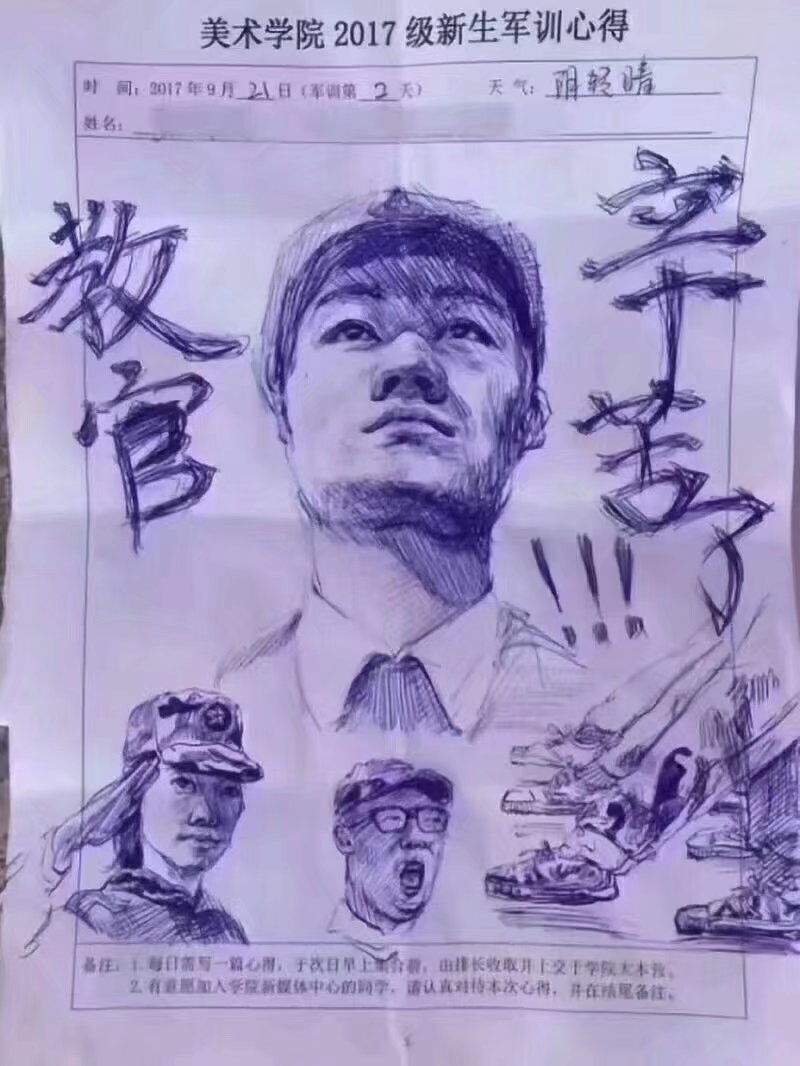 美术学院 2017 级新生军训心得
时 间：2017 年 9 月 21 日（军训第 2 天） 天 气：阴转晴
姓名：
教官
辛苦了
!!!
备注：1. 每日需写一篇心得，于次日早上集合前，由排长收取并上交于学院大本营。
2. 有意愿加入学院新媒体中心的同学，请认真对待本次心得，并在结尾备注。